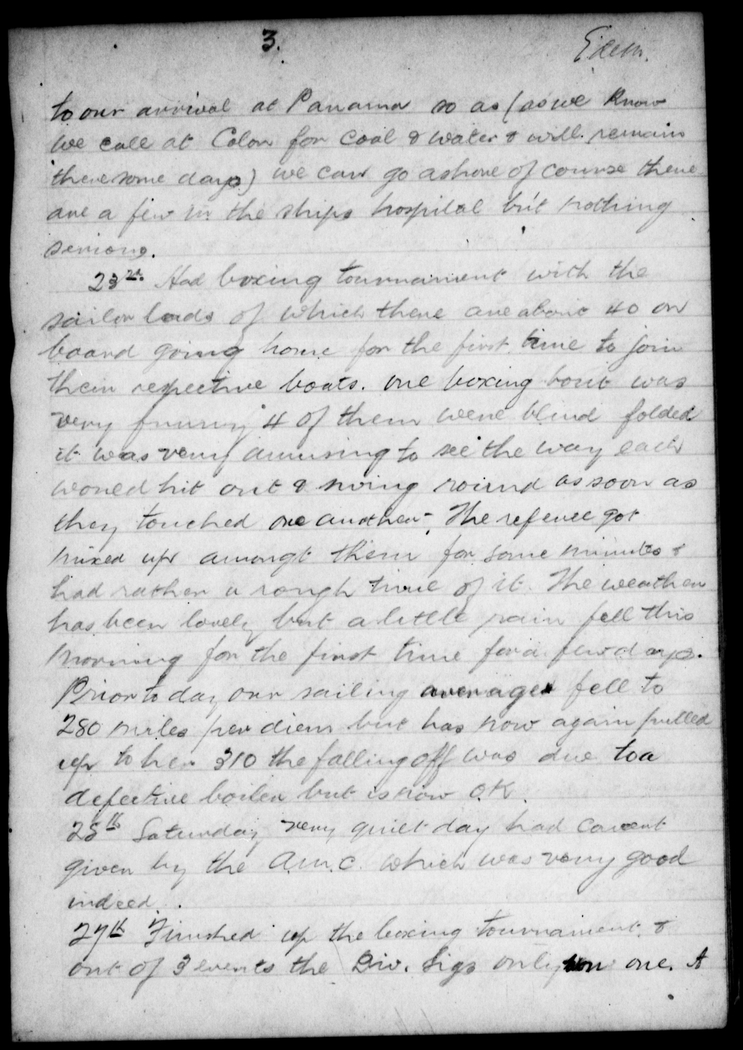 3.
to our arrival at Panama so as (as we know
we call at Colon for coal & water & will remain
there some days) we can go ashore of course there
are a few in the ships hospital but nothing
serious.
23rd Had boxing tournament with the
sailor lads of which there are about 40 on
board going home for the first time to join
their respective boats. one boxing bout was
very funny 4 of them were blind folded
it was very amusing to see the way each
woned hit out & swing round as soon as
they touched one another. The referee got
mixed up amongt them for some minutes &
had rather a rough time of it. The weather
has been lovely but a little rain fell this
morning for the first time for a few days.
Prior to day our sailing average fell to
280 miles per diem but has now again pulled
up to her 310 the falling off was due to a
defective boiler but is now O.K.
25th Saturday very quiet day had concert
given by the A.M.C. which was very good
indeed.
27th Finished up the boxing tournament &
out of 3 events the Div. Sigs only won one. A